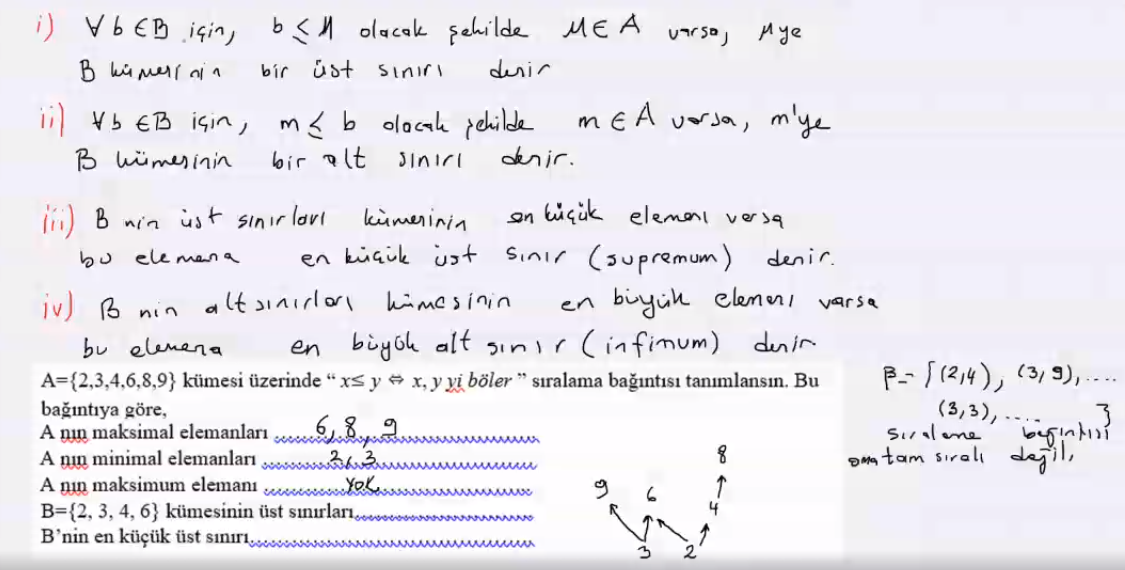 i) ∀b∈B için, b≤M olacak şekilde M∈A varsa, M ye
B kümesinin bir üst sınırı denir
ii) ∀b∈B için, m≤b olacak şekilde m∈A varsa, m'ye
B kümesinin bir alt sınırı denir.
iii) B nin üst sınırları kümesinin en küçük elemanı varsa
bu elemana en küçük üst sınır (supremum) denir.
iv) B nin alt sınırları kümesinin en büyük elemanı varsa
bu elemana en büyük alt sınır (infimum) denir
A={2,3,4,6,8,9} kümesi üzerinde “ x≤ y ⇔ x, y yi böler ” sıralama bağıntısı tanımlansın. Bu
bağıntıya göre,
A nın maksimal elemanları 6, 8, 9
A nın minimal elemanları 2, 3
A nın maksimum elemanı Yok
B={2, 3, 4, 6} kümesinin üst sınırları
B’nin en küçük üst sınırı
8
9 6
4
3 2
β = {(2,4), (3,9), ....
(3,3), .... }
sıralama bağıntısı
ama tam sıralı değil,